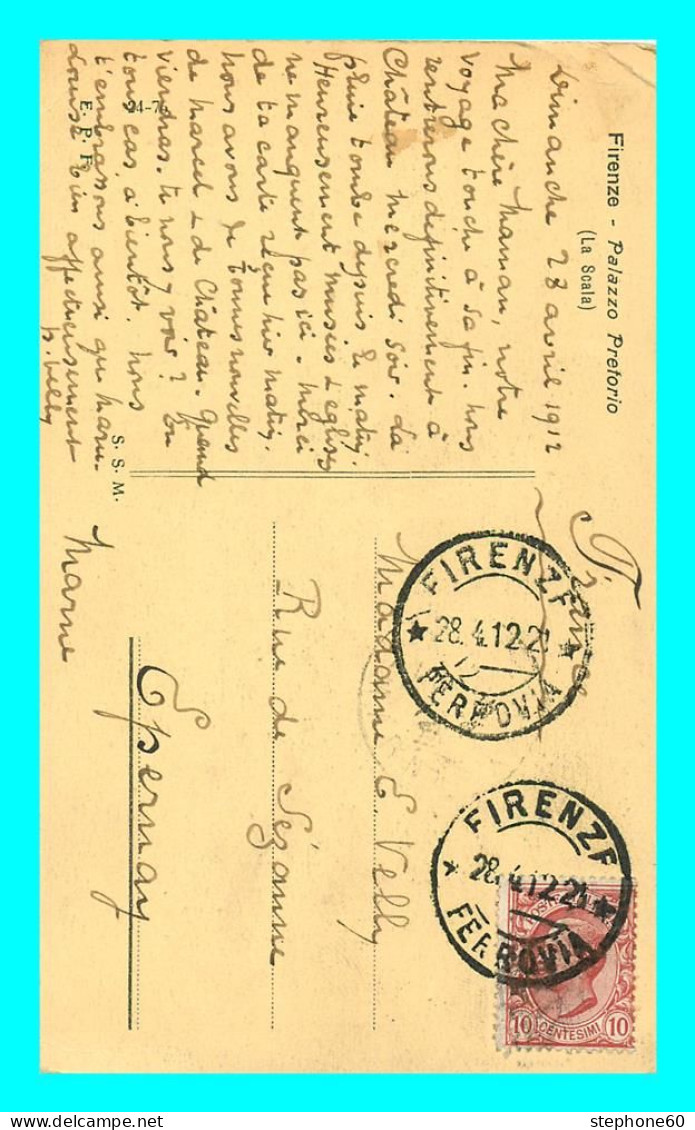 Firenze - Palazzo Pretorio
(La Scala)
Dimanche 28 avril 1912
Ma chère Maman, notre
voyage touche à sa fin. Nous
rentrerons définitivement à
Château mercredi soir. La
pluie tombe depuis le matin.
Heureusement musées & églises
ne manquent pas ici. Merci
de ta carte reçue hier matin.
Nous avons de bonnes nouvelles
de Marcel & de Château. Quand
viendras-tu nous y voir? En
tous cas, à bientôt. Nous
t'embrassons ainsi que
Louise bien affectueusement
P. Velly
E. P. F.
S. S. M.
France
Madame E. Velly
Rue de Sézanne
Epernay
Marne
FIRENZE
28.4.12-21
FERROVIA
FIRENZE
28.4.12-21
FERROVIA
10 CENTESIMI 10
stephone60